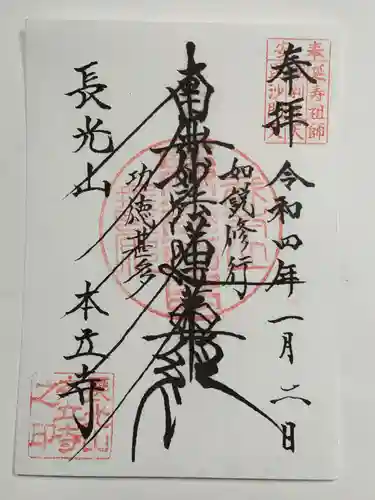 奉拝
令和四年一月二日
如説修行
南無妙法蓮華経
功徳甚多
長光山 本立寺